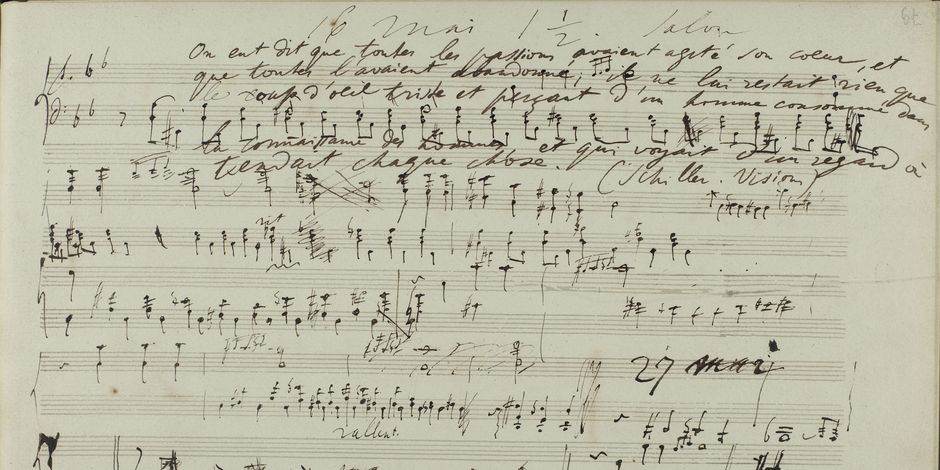 16 mai 1 1/2. Salon
On eut dit que toutes les passions avaient agité son coeur, et
que toutes l'avaient abandonné; il ne lui restait rien que
le coup d'oeil triste et perçant d'un homme consommé dans
la connaissance des hommes et qui voyait d'un regard où
tendait chaque chose. (Schiller. Vision)
rit
27 mai
rallent.